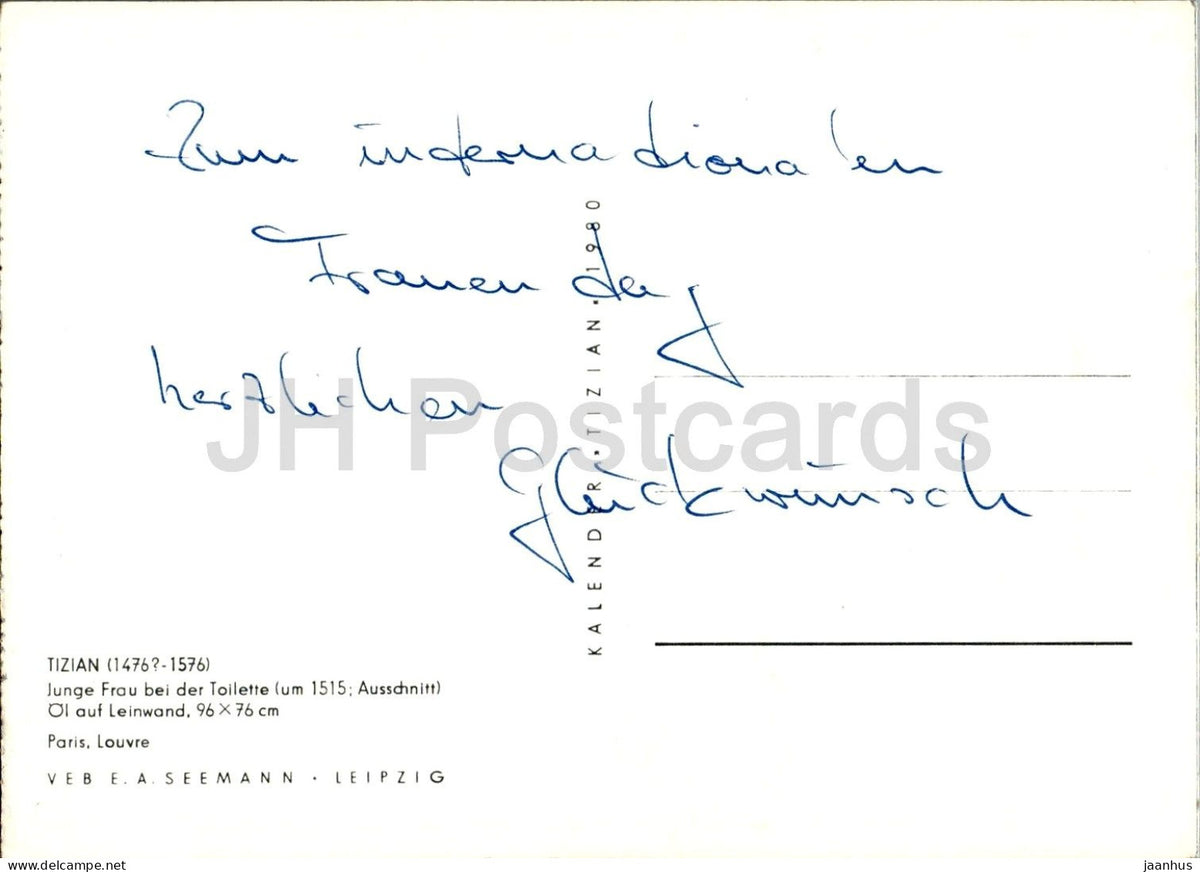 Zum internationalen
Frauentag
herzlichen
Glückwunsch
KALENDER · TIZIAN · 1980
JH Postcards
TIZIAN (1476?-1576)
Junge Frau bei der Toilette (um 1515; Ausschnitt)
Öl auf Leinwand, 96×76 cm
Paris, Louvre
VEB E. A. SEEMANN · LEIPZIG
www.delcampe.net
jaanhus